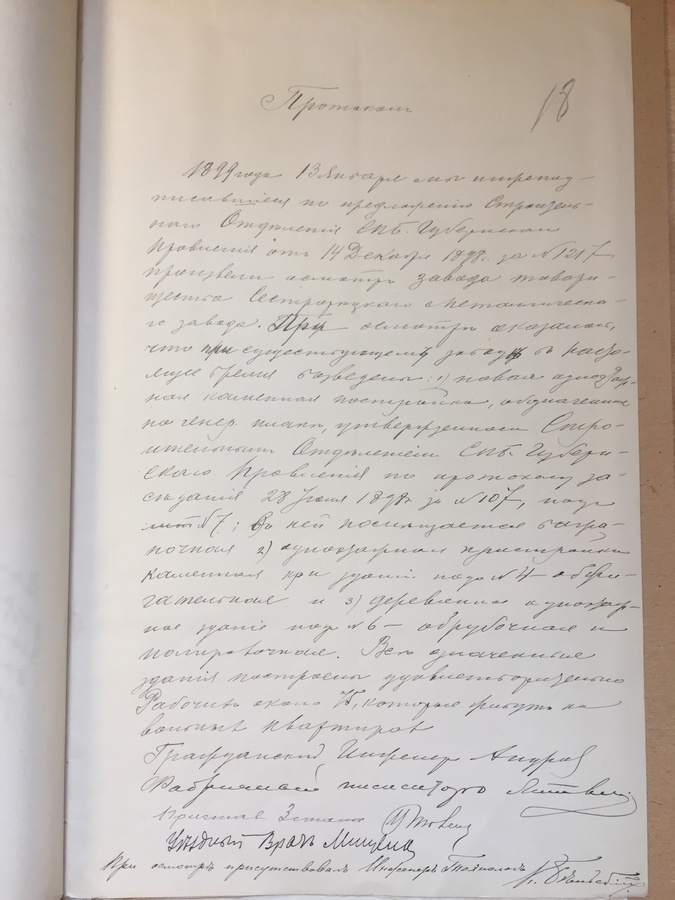 18
Протоколъ
1899 года 13 Января мы нижепод-
писавшіеся по предложенію Строитель-
наго Отдѣленія СПБ. Губернскаго
Правленія отъ 14 Декабря 1898 г. за №1217
произвели осмотръ завода товари-
щества Сестрорѣцкаго
го завода. При осмотрѣ оказалось,
что при существующему заводу въ насто-
ящее время возведены: 1) новая одноэтаж-
ная каменная постройка, обозначенная
на генер. планѣ, утвержденномъ Стро-
ительнымъ Отдѣленіемъ СПБ. Губерн-
скаго Правленія по протоколу за-
сѣданія 28 1898 г. за №107, подъ
лит №7; въ ней помѣщается
2) одноэтажная пристройка
каменная при зданіи подъ №4 –
и 3) деревянное одноэтаж-
ное зданіе подъ №6 – обрубочная и
полировочная. Всѣ означенныя
зданія построены удовлетворительно
Рабочихъ около 75, которые живутъ на
вольныхъ квартирахъ
Гражданскій Инженеръ
Фабричный
Приставъ 3 стана
Уѣздный Врачъ
При осмотрѣ присутствовалъ Инженеръ Технологъ